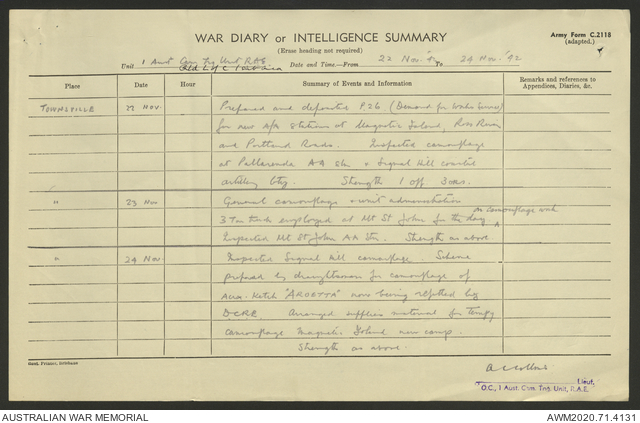 WAR DIARY or INTELLIGENCE SUMMARY
Army Form C.2118
(adapted.)
(Erase heading not required)
Unit 1 Aust Cam Trg Unit RAE Date and Time—From 22 Nov. '42 To 24 Nov. '42
Qld L of C
Place Date Hour Summary of Events and Information Remarks and references to Appendices, Diaries, &c.
TOWNSVILLE 22 Nov. Prepared and P26 (Demand for Works Service)
for new A/A stations at Magnetic Island, Ross River
and Portland Roads. Inspected camouflage
at Pallarenda AA Stn & Signal Hill coastal
artillery bty. Strength 1 off 3
" 23 Nov General camouflage & unit administration
3 Ton truck employed at Mt St John for the day on camouflage work
Inspected Mt St John AA Stn. Strength as above.
" 24 Nov. Inspected Signal Hill camouflage. Scheme
prepared by draughtsman for camouflage of
Ketch "ARDETTA" now being refitted by
DCRE. Arranged supplies material for
camouflage Magnetic Island new camp.
Strength as above.
Govt. Printer, Brisbane
Lieut.
O.C., 1 Aust. Cam. Tng. Unit, R.A.E.
AUSTRALIAN WAR MEMORIAL AWM2020.71.4131